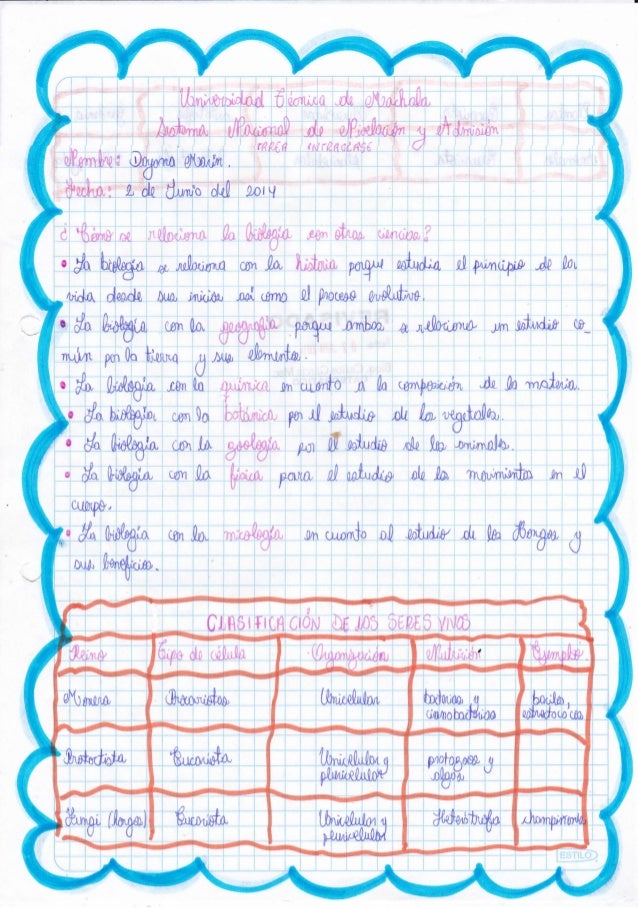 Universidad Técnica de Machala
Sistema Nacional de Nivelación y Admisión
TAREA INTRACLASE
Nombre: Dayana Marín.
Fecha: 2 de Junio del 2014
¿Cómo se relaciona la biología con otras ciencias?
• La biología se relaciona con la historia porque estudia el principio de la
vida desde sus inicios así como el proceso evolutivo.
• La biología con la geografía porque ambas se relaciona un estudio co_
mún por la tierra y sus elementos.
• La biología con la química en cuanto a la composición de la materia.
• La biología con la botánica por el estudio de los vegetales.
• La biología con la zoología por el estudio de los animales.
• La biología con la física para el estudio de los movimientos en el
cuerpo.
• La biología con la micología en cuanto al estudio de los Hongos y
sus beneficios.
CLASIFICACIÓN DE LOS SERES VIVOS
Reino Tipo de célula Organización Nutrición Ejemplo.
Monera Procariotas Unicelular bacterias y bacilos,
cianobacterias estreptococos
Protoctista Eucariota Unicelular y protozoos y
pluricelular algas
Fungi (hongos) Eucariota Unicelular y Heterótrofa champiñones
pluricelular
ESTILO